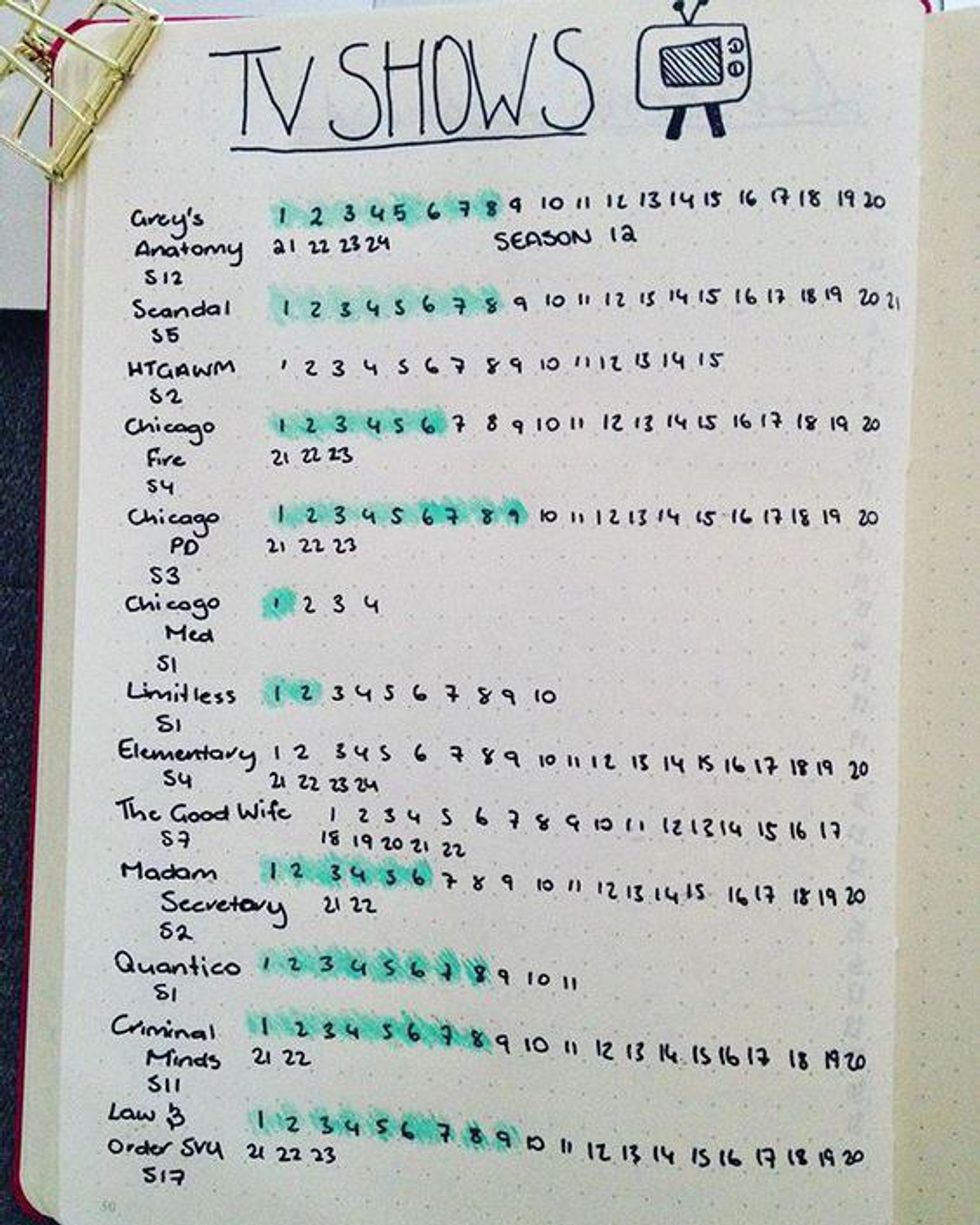 TV SHOWS
Grey's 1 2 3 4 5 6 7 8 9 10 11 12 13 14 15 16 17 18 19 20
Anatomy 21 22 23 24 SEASON 12
S12
Scandal 1 2 3 4 5 6 7 8 9 10 11 12 13 14 15 16 17 18 19 20 21
S5
HTGAWM 1 2 3 4 5 6 7 8 9 10 11 12 13 14 15
S2
Chicago 1 2 3 4 5 6 7 8 9 10 11 12 13 14 15 16 17 18 19 20
Fire 21 22 23
S4
Chicago 1 2 3 4 5 6 7 8 9 10 11 12 13 14 15 16 17 18 19 20
PD 21 22 23
S3
Chicago 1 2 3 4
Med
S1
Limitless 1 2 3 4 5 6 7 8 9 10
S1
Elementary 1 2 3 4 5 6 7 8 9 10 11 12 13 14 15 16 17 18 19 20
S4 21 22 23 24
The Good Wife 1 2 3 4 5 6 7 8 9 10 11 12 13 14 15 16 17
S7 18 19 20 21 22
Madam 1 2 3 4 5 6 7 8 9 10 11 12 13 14 15 16 17 18 19 20
Secretary 21 22
S2
Quantico 1 2 3 4 5 6 7 8 9 10 11
S1
Criminal 1 2 3 4 5 6 7 8 9 10 11 12 13 14 15 16 17 18 19 20
Minds 21 22
S11
Law & 1 2 3 4 5 6 7 8 9 10 11 12 13 14 15 16 17 18 19 20
Order SVU 21 22 23
S17
50